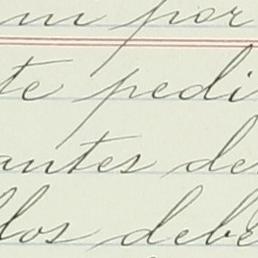 m por
te pedi
antes de
llos debe